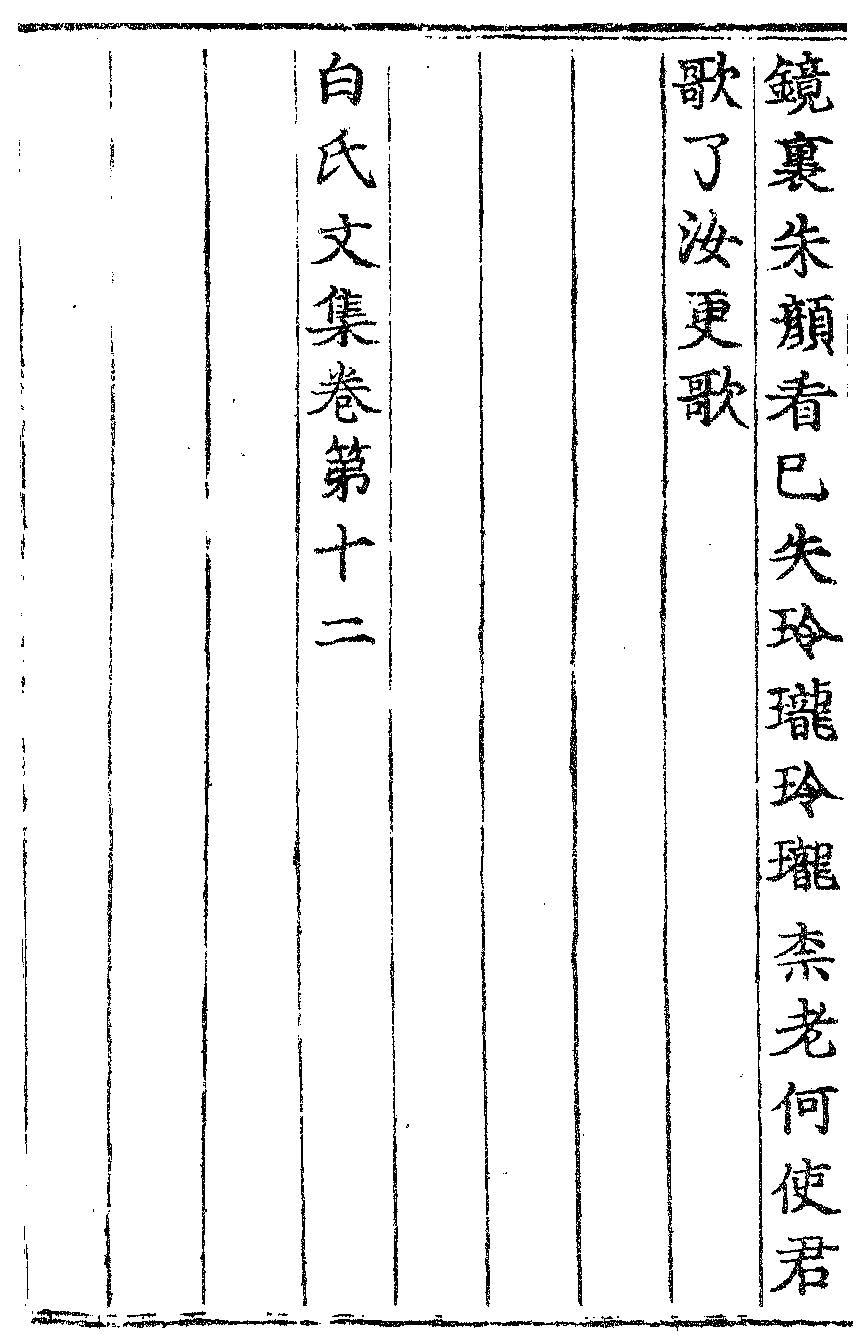 鏡裏朱顔看巳失玲瓏玲瓏柰老何使君
歌了汝更歌
白氏文集卷第十二